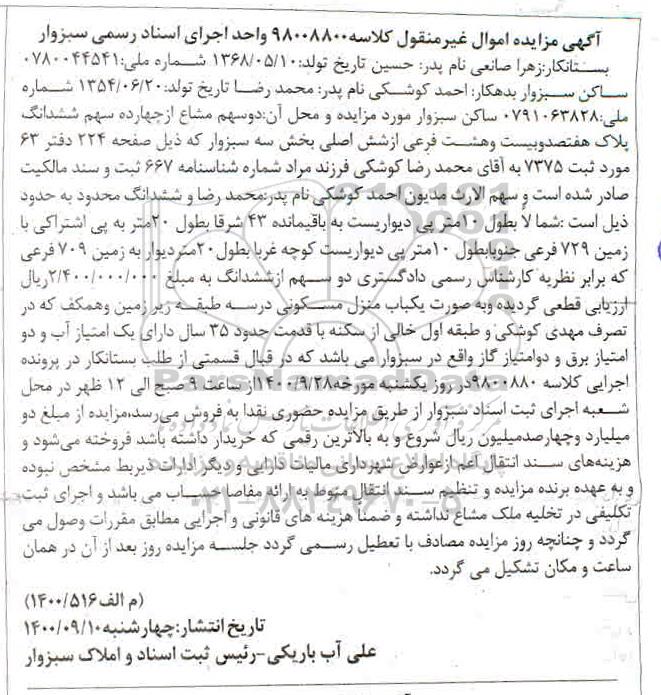 آگهی مزایده اموال غیرمنقول کلاسه ۹۸۰۰۸۸۰۰ واحد اجرای اسناد رسمی سبزوار
بستانکار:زهرا صانعی نام پدر: حسین تاریخ تولد:۱۳۶۸/۰۵/۱۰ شماره ملی:۰۷۸۰۰۴۴۵۴۱
ساکن سبزوار بدهکار: احمد کوشکی نام پدر: محمد رضا تاریخ تولد:۱۳۵۴/۰۶/۲۰ شماره
ملی:۰۷۹۱۰۶۳۸۲۸ ساکن سبزوار مورد مزایده و محل آن:دوسهم مشاع ازچهارده سهم ششدانگ
پلاک هفتصدوبیست وهشت فرعی ازشش اصلی بخش سه سبزوار که ذیل صفحه ۲۲۴ دفتر ۶۳
مورد ثبت ۷۳۷۵ به آقای محمد رضا کوشکی فرزند مراد شماره شناسنامه ۶۶۷ ثبت و سند مالکیت
صادر شده است و سهم الارث مدیون احمد کوشکی نام پدر:محمد رضا و ششدانگ محدود به حدود
ذیل است :شمالا بطول ۱۰متر پی دیواریست به باقیمانده ۴۳ شرقا بطول ۲۰متر به پی اشتراکی با
زمین ۷۲۹ فرعی جنوبابطول ۱۰متر پی دیواریست کوچه غربا بطول۲۰متردیوار به زمین ۷۰۹ فرعی
که برابر نظریه کارشناس رسمی دادگستری دو سهم ازششدانگ به مبلغ ۲/۴۰۰/۰۰۰/۰۰۰ریال
ارزیابی قطعی گردیده وبه صورت یکباب منزل مسکونی درسه طبقه زیر زمین وهمکف که در
تصرف مهدی کوشکی و طبقه اول خالی از سکنه با قدمت حدود ۳۵ سال دارای یک امتیاز آب و دو
امتیاز برق و دوامتیاز گاز واقع در سبزوار می باشد که در قبال قسمتی از طلب بستانکار در پرونده
اجرایی کلاسه ۹۸۰۰۸۸۰در روز یکشنبه مورخه۱۴۰۰/۹/۲۸از ساعت ۹ صبح الی ۱۲ ظهر در محل
شعبه اجرای ثبت اسناد سبزوار از طریق مزایده حضوری نقدا به فروش می‌رسد،مزایده از مبلغ دو
میلیارد وچهارصدمیلیون ریال شروع و به بالاترین رقمی که خریدار داشته باشد فروخته می‌شود و
هزینه‌های سند انتقال اعم ازعوارض شهرداری مالیات دارایی و دیگر ادارات ذیربط مشخص نبوده
و به عهده برنده مزایده و تنظیم سند انتقال منوط به ارائه مفاصا حساب می باشد و اجرای ثبت
تکلیفی در تخلیه ملک مشاع نداشته و ضمنا هزینه های قانونی و اجرایی مطابق مقررات وصول می
گردد و چنانچه روز مزایده مصادف با تعطیل رسمی گردد جلسه مزایده روز بعد از آن در همان
ساعت و مکان تشکیل می گردد.
(م الف۱۴۰۰/۵۱۶)
تاریخ انتشار:چهارشنبه۱۴۰۰/۰۹/۱۰
علی آب باریکی-رئیس ثبت اسناد و املاک سبزوار